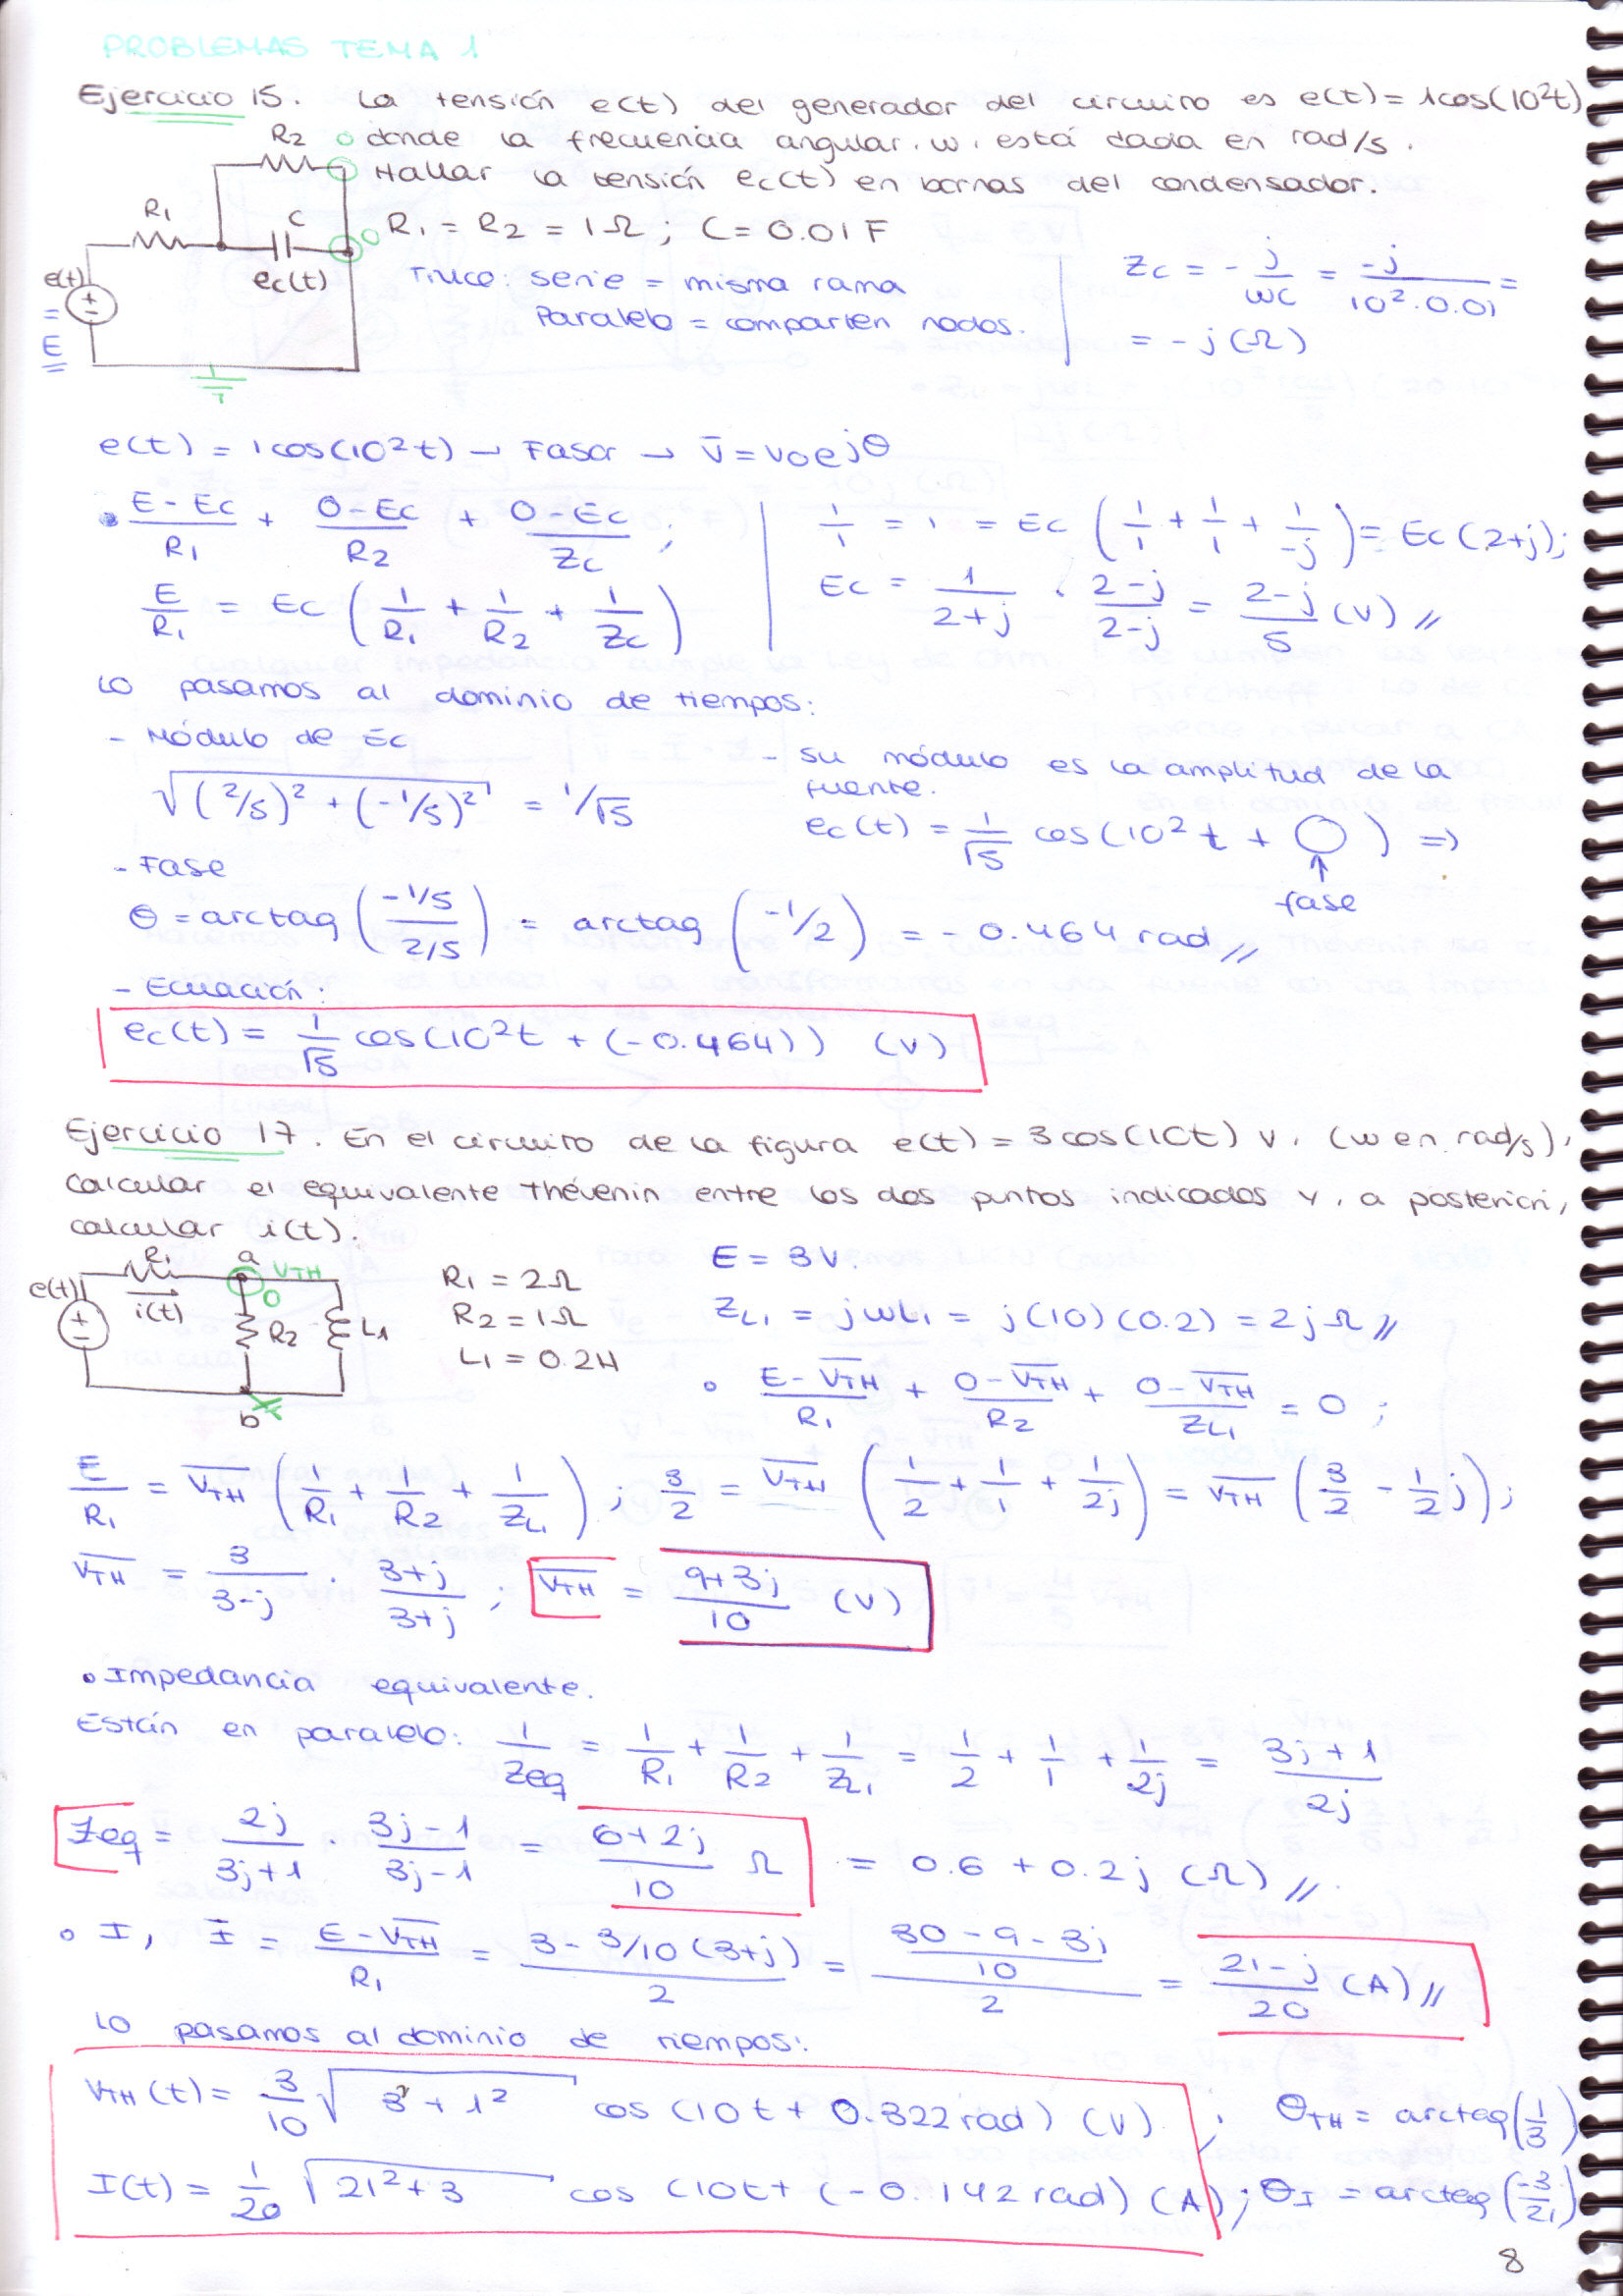 PROBLEMAS TEMA 1
Ejercicio 15. La tensión e(t) del generador del circuito es e(t) = 1cos(10²t),
donde la frecuencia angular, w, está dada en rad/s.
Hallar la tensión ec(t) en bornas del condensador.
R2 0
R1 C 0
e(t) ec(t)
+
-
=
E
R1 = R2 = 1Ω ; C = 0.01 F
Truco: serie = misma rama
Paralelo = comparten nodos.
Zc = - j/wc = -j/10²·0.01 =
= -j (Ω)
e(t) = 1cos(10²t) → Fasor → V̄ = V0 e^jθ
• E-Ec/R1 + 0-Ec/R2 + 0-Ec/Zc ;
E/R1 = Ec (1/R1 + 1/R2 + 1/Zc)
1/1 = 1 = Ec (1/1 + 1/1 + 1/-j) = Ec (2+j);
Ec = 1/2+j · 2-j/2-j = 2-j/5 (V) //
Lo pasamos al dominio de tiempos:
- Módulo de Ec
√(2/5)² + (-1/5)² = 1/√5
- Su módulo es la amplitud de la
fuente.
ec(t) = 1/√5 cos(10²t + ◯) ⇒
↑
fase
- Fase
θ = arctag (-1/5 / 2/5) = arctag (-1/2) = -0.464 rad //
- Ecuación:
ec(t) = 1/√5 cos(10²t + (-0.464)) (V)
Ejercicio 17. En el circuito de la figura e(t) = 3cos(10t) V, (w en rad/s),
calcular el equivalente Thévenin entre los dos puntos indicados y, a posteriori,
calcular i(t).
R1 a VTH
e(t) i(t) 0
+
-
R2 L1
b
R1 = 2Ω
R2 = 1Ω
L1 = 0.2H
E = 3V.
ZL1 = jwL1 = j(10)(0.2) = 2jΩ //
• E-VTH/R1 + 0-VTH/R2 + 0-VTH/ZL1 = 0 ;
E/R1 = VTH (1/R1 + 1/R2 + 1/ZL1) ; 3/2 = VTH (1/2 + 1/1 + 1/2j) = VTH (3/2 - 1/2 j) ;
VTH = 3/3-j · 3+j/3+j ; VTH = 9+3j/10 (V)
• Impedancia equivalente.
Están en paralelo: 1/Zeq = 1/R1 + 1/R2 + 1/ZL1 = 1/2 + 1/1 + 1/2j = 3j+1/2j
Zeq = 2j/3j+1 · 3j-1/3j-1 = 6+2j/10 Ω = 0.6 + 0.2j (Ω) //
• I, Ī = E-VTH/R1 = 3-3/10(3+j)/2 = 30-9-3j/10/2 = 21-j/20 (A) //
Lo pasamos al dominio de tiempos:
VTH(t) = 3/10 √3²+1² cos(10t + 0.322 rad) (V) ; θTH = arctag(1/3)
I(t) = 1/20 √21²+3 cos(10t + (-0.142 rad) (A) ; θI = arctag(-3/21)
8